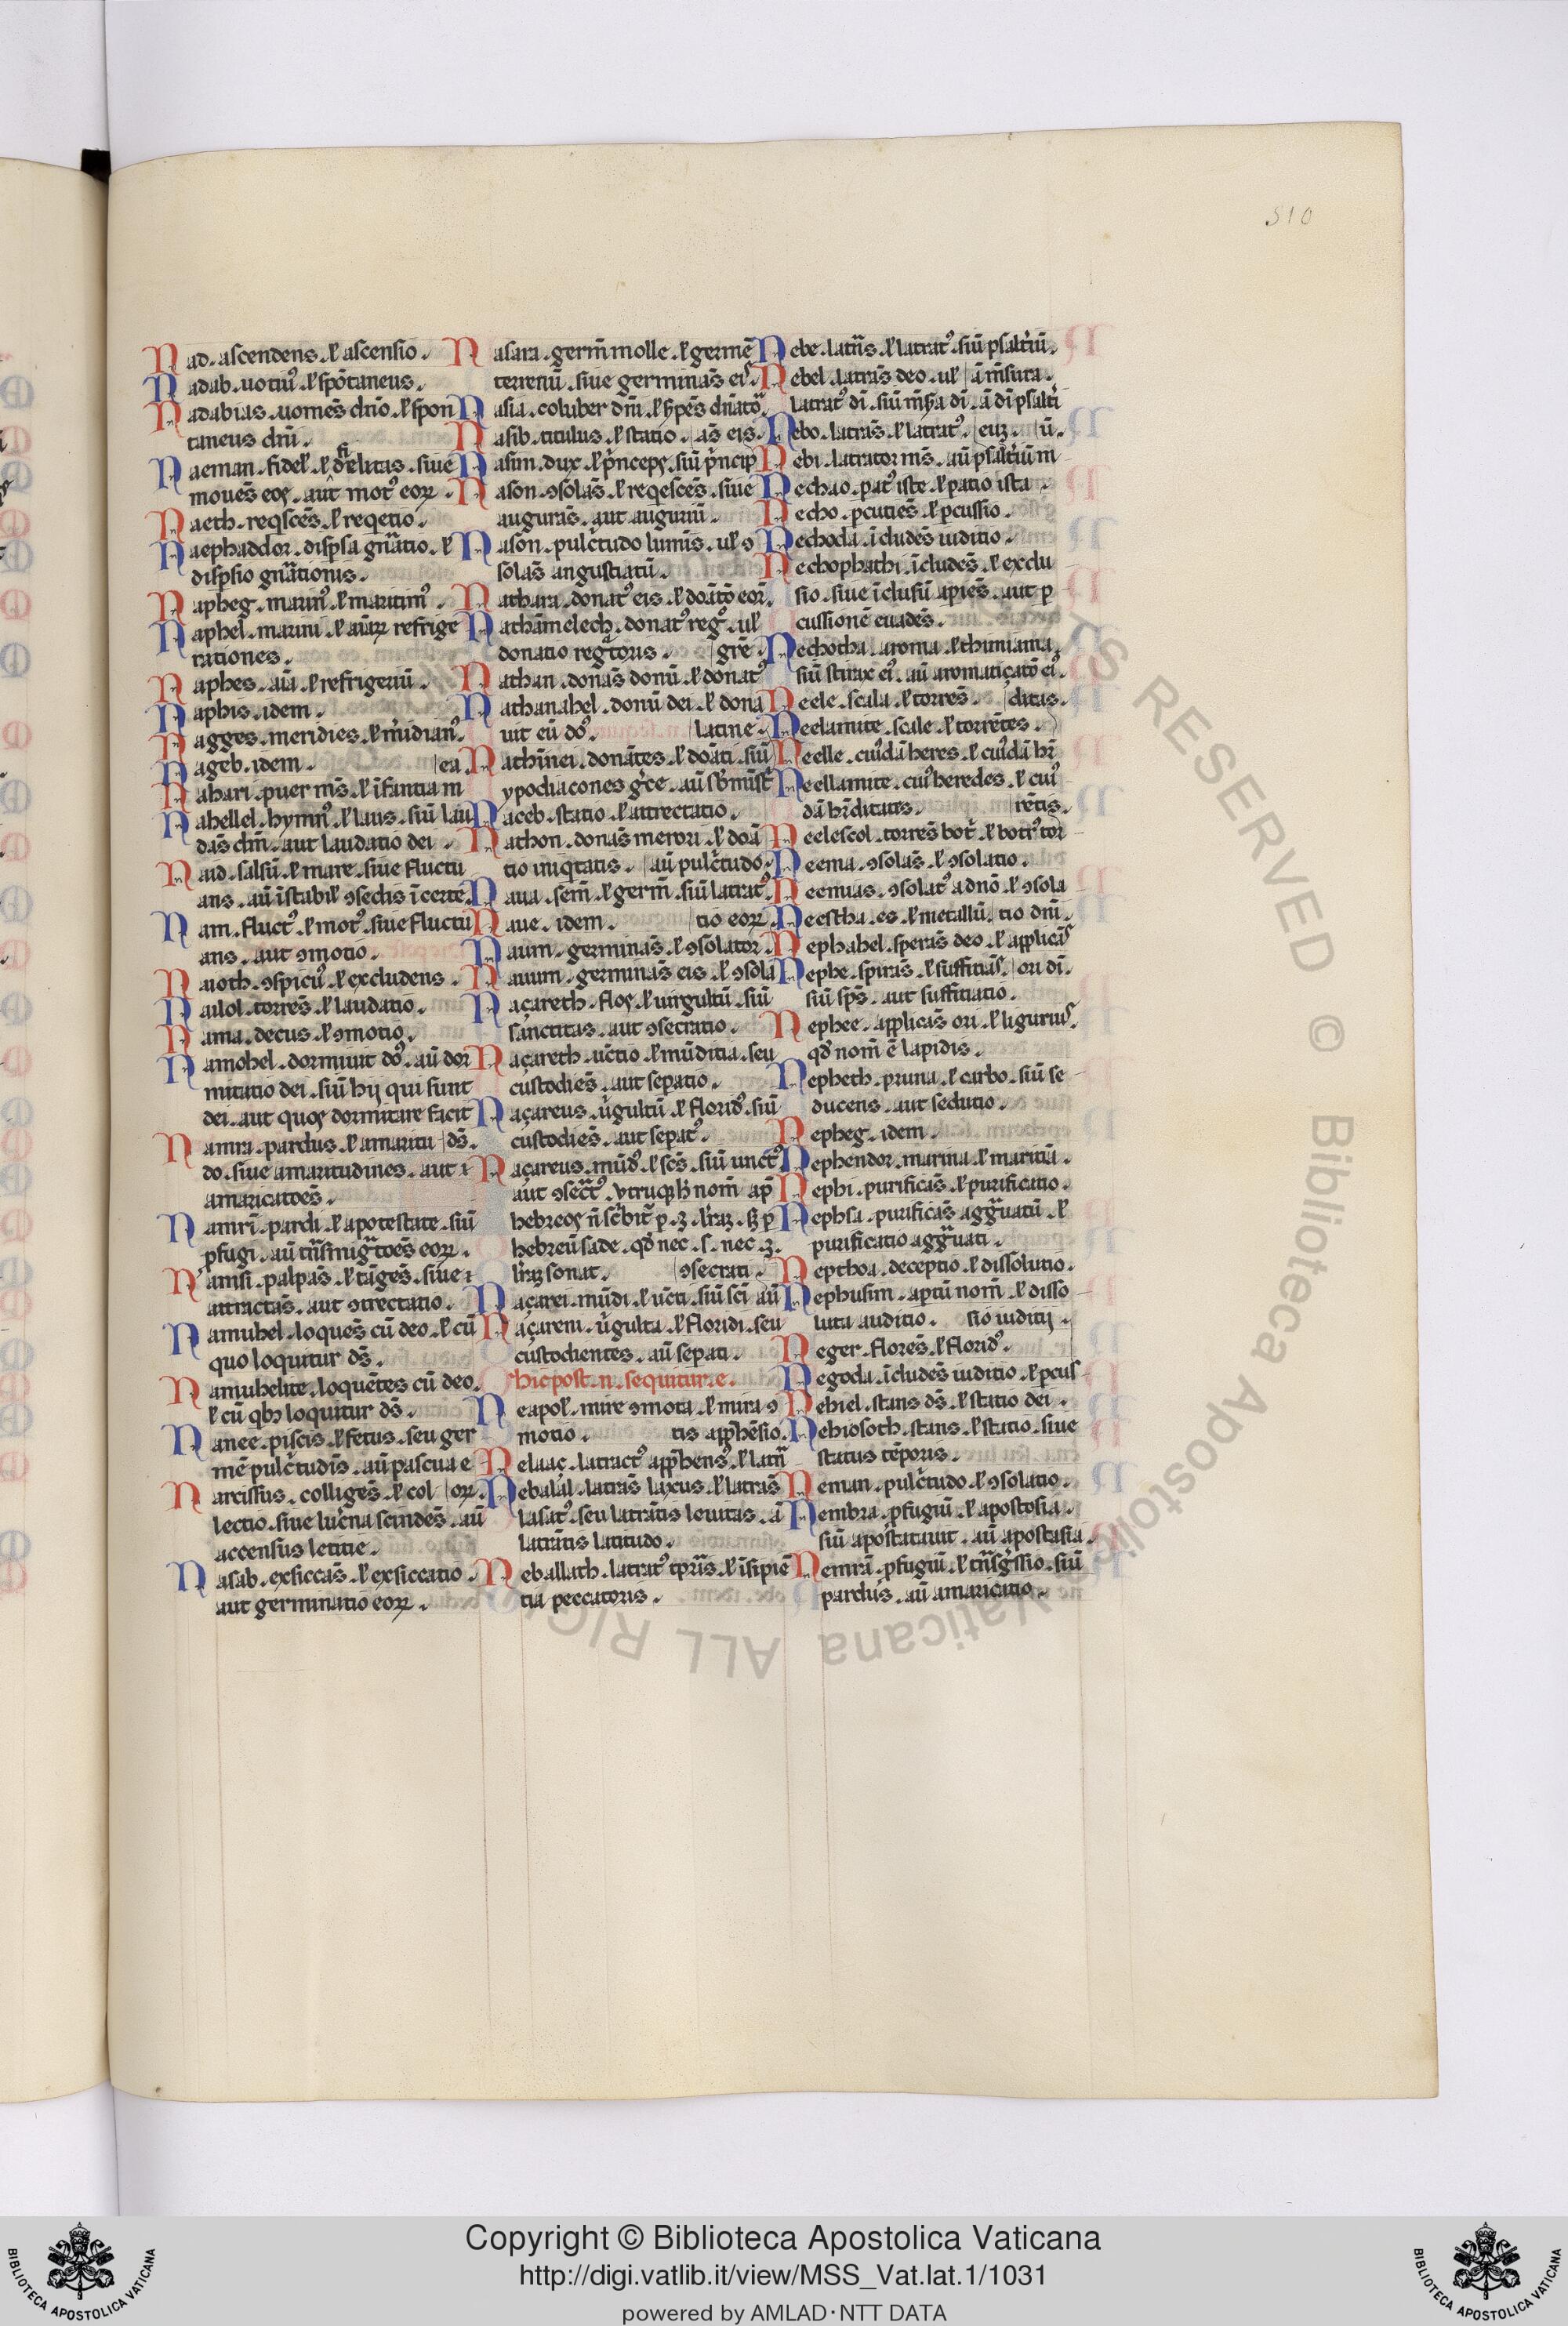 510
Nad. ascendens. ł ascensio.
Nadab. uotiuꝰ. ł spōtaneus.
Nadabias. uomēs dn̄o. ł spon
taneus dn̄i.
moues eos. aut motꝰ eoꝝ.
Naeth. reqscēs. ł reqetio.
Naephaddor. disp̄sa gn̄atio. ł
disp̄sio gn̄ationis.
Napheg. marinꝰ. ł maritimꝰ.
Naphel. marini. ł aīaꝝ refrige
rationes.
Naphes. aīa. ł refrigeriū.
Naphis. idem.
Nagges. meridies. ł m̄idianꝰ.
Nageb. idem. ea
Nahari. puer ms̄. ł īfantia m
Nahellel. hymnꝰ. ł laus. siū lau
das dm̄. aut laudatio dei.
Naid. salsū. ł mare. siue fluctu
ans. aū īstabiƚ ꝯsedis īcerte.
Nam. fluctꝰ. ł motꝰ. siue fluctu
ans. aut ꝯmotio.
Naioth. ꝯspicuꝰ. ł excludens.
Nailol. torrēs. ł laudatio.
Nama. decus. ł ꝯmotio.
Namohel. dormiuit dꝰ. aū dor
mitatio dei. siū hij qui sunt
dei. aut quos dormitare facit
Namra. pardus. ł amaritu ds̄.
do. siue amaritudines. aut ⁊
amaricatoēs.
Namri. pardi. ł apotestate. siū
ꝓfugi. aū trn̄smigᵃtoēs eoꝝ.
Namsi. palpās. ł tāgēs. siue ⁊
attractās. aut ꝯtrectatio.
Namuhel. loquēs cū deo. ł cū
quo loquitur ds̄.
Namuhelite. loquētes cū deo.
ł cū qbꝫ loquitur ds̄.
Nanee. piscis. ł fetus. seu ger
mē pulc̄tudīs. aū pascua e
Narcissus. colligēs. ł col oꝝ.
lectio. siue luc̄na scindēs. aū
accensus letitie.
Nasab. exsiccās. ł exsiccatio.
aut germinatio eoꝝ.
Nasara. germ̄ molle. ł germē
terrenū. siue germinās eiꝰ.
Nasib. titulus. ł statio. as̄ eis.
Nason. ꝯsolās. ł reqescēs. siue
augurās. aut auguriū.
Nason. pulc̄tudo lumīs. ul̄ ꝯ
solās angustiatū.
Nathara. donatꝰ eis. ł doātō eoꝝ.
Nathāmelech. donatꝰ regꝰ. ul̄
donatio regᵃtoris. gr̄e.
Nathan. donās donū. ł donatꝰ
Nathanahel. donū dei. ł dona
uit eū dꝰ. latine.
Nathinei. donātes. ł doāti. siū
ypodiacones gr̄ce. aū sb̄mīst̄
Naceb. statio. ł attrectatio.
Nathon. donās merori. ł doā
tio iniqtatis. aū pulc̄tudo.
Naua. sem̄. ł germ̄. siū latratꝰ.
Naue. idem. tio eoꝝ.
Naum. germinās. ł ꝯsolator.
Nauum. germinās eis. ł ꝯsola
Naçareth. flos. ł uirgultū. siū
sanctitas. aut ꝯsecratio.
Naçareth. uc̄tio. ł mūditia. seu
custodiēs. aut sep̄atio.
Naçareus. ūgultū. ł floridꝰ. siū
custodiēs. aut sep̄atꝰ.
Naçareus. mūdꝰ. ł scs̄. siū unctꝰ.
aut ꝯsec̄tꝰ. vtruqꝫ h̄ nom̄ ap̄
hebreos n̄ sc̄bit̄ p. ȝ. lr̄aꝫ. sꝫ p
hebreū sade. qd̄ nec. s. nec. ȝ.
lr̄aꝫ sonat. ꝯsecrati.
Naçarei. mūdi. ł uc̄ti. siū sci aū
Naçareni. ūgulta. ł floridi. seu
custodientes. aū sep̄ati.
hic post. n. sequitur. e.
Neapoƚ. mire ꝯmota. ł mira ꝯ
motio. tis app̄hēsio.
Nelaaç. latractꝰ app̄hensꝰ. ł latrā
Nebalal. latrās laxus. ł latrās
lasatꝰ. seu latrātis leuitas. ā
latrātis latitudo.
Neballath. latratꝰ tpr̄is. ł īsipiē
tia peccatoris.
Nebe. latrās. ł latratꝰ. siū psaltiū.
Nebel. latrās deo. ul̄ ā m̄sura.
latratꝰ di. siū m̄sa di. ā di psalti
Nebo. latrās. ł latratꝰ. euꝫ. ū.
Nebi. latrator ms̄. aū psaltiū m
Nechao. patꝰ iste. ł patio ista
Necho. ꝑcutiēs. ł ꝑcussio.
Nechoda. īcludēs iuditio.
Nechophathi. īcludēs. ł exclu
sio. siue īclusū apiēs. aut ꝑ
cussionē euadēs.
Nechotha. aroma. ł thimiama,
siū stirax eiꝰ. aū aromatiçatō eiꝰ.
Neele. scala. ł torrēs. ditas.
Neelamite. scale. ł torrētes.
Neelle. cuiꝰdā heres. ł cuiꝰdā hr̄
Neellamite. cuiꝰ heredes. ł cuiꝰ
dā hr̄ditatis. rētis.
Neelescol. torrēs bot̄. ł botrꝰ tor
Neema. ꝯsolās. ł ꝯsolatio.
Neemias. ꝯsolatꝰ adnō. ł ꝯsola
Neestha. es. ł metallū. tio dn̄i.
Nephahel. sperās deo. ł applicās
Nephe. spirās. ł suffitiās. ori di.
siū sps̄. aut suffitiatio.
Nephee. applicās ori. ł liguriꝰ.
qd̄ nom̄ ē lapidis.
Nepheth. pruna. ł carbo. siū se
ducens. aut seductio.
Nepheg. idem.
Nephendor. marina. ł maritīa.
Nephi. purificās. ł purificatio.
Nephsa. purificās aggᵃuatū. ł
purificatio aggᵃuati.
Nepthoa. deceptio. ł dissolutio.
Nephusim. aptū nom̄. ł disso
luta auditio. sio iuditij.
Neger. florēs. ł floridꝰ.
Negoda. īcludēs iuditio. ł ꝑcus
Nehiel. stans ds̄. ł statio dei.
Nehiosoth. stans. ł statio. siue
status tēporis.
Neman. pulc̄tudo. ł ꝯsolatio.
Nembra. ꝓfugiū. ł apostosia.
siū apostatauit. aū apostasia.
Nemrā. ꝓfugiū. ł trn̄sḡssio. siū
pardus. aū amaricatio.
ALL RIGHTS RESERVED © Biblioteca Apostolica Vaticana
Copyright © Biblioteca Apostolica Vaticana
http://digi.vatlib.it/view/MSS_Vat.lat.1/1031
powered by AMLAD·NTT DATA
BIBLIOTECA APOSTOLICA VATICANA
BIBLIOTECA APOSTOLICA VATICANA